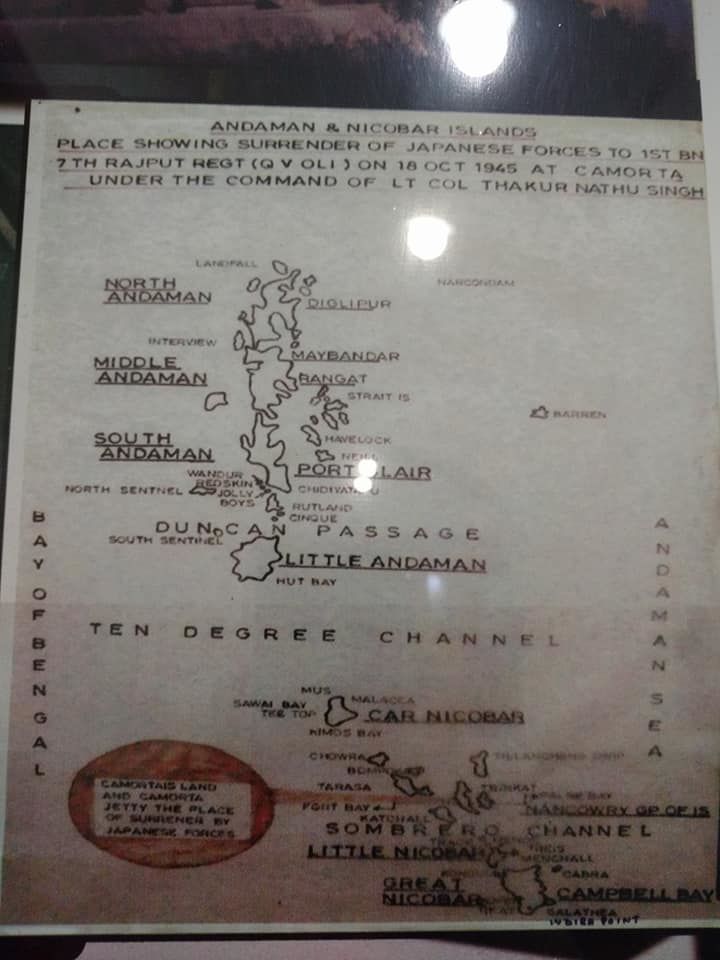 ANDAMAN & NICOBAR ISLANDS
PLACE SHOWING SURRENDER OF JAPANESE FORCES TO 1ST BN
7 TH RAJPUT REGT (Q V OLI) ON 18 OCT 1945 AT CAMORTA
UNDER THE COMMAND OF LT COL THAKUR NATHU SINGH
LANDFALL
NORTH
ANDAMAN
NARCONDAM
DIGLIPUR
INTERVIEW
MAYBANDAR
MIDDLE
ANDAMAN
RANGAT
STRAIT IS
BARREN
SOUTH
ANDAMAN
HAVELOCK
NEILL
PORT BLAIR
WANDUR
REDSKIN
JOLLY
BOYS
NORTH SENTNEL
RUTLAND
CINQUE
DUNCAN PASSAGE
SOUTH SENTINEL
LITTLE ANDAMAN
HUT BAY
BAY OF BENGAL
ANDAMAN SEA
TEN DEGREE CHANNEL
MUS
MALACCA
SAWAI BAY
TEE TOP
CAR NICOBAR
KIMOS BAY
CHOWRA
TARASA
KATCHALL
NANCOWRY GP OF IS
SOMBRERO CHANNEL
CAMORTA IS LAND
AND CAMORTA
JETTY THE PLACE
OF SURRENER BY
JAPANESE FORCES
LITTLE NICOBAR
MENCHALL
CABRA
GREAT
NICOBAR
CAMPBELL BAY
GALATHEA
INDIRA POINT